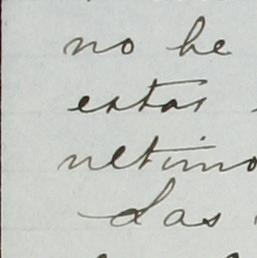 no he
estas
ultimo
das